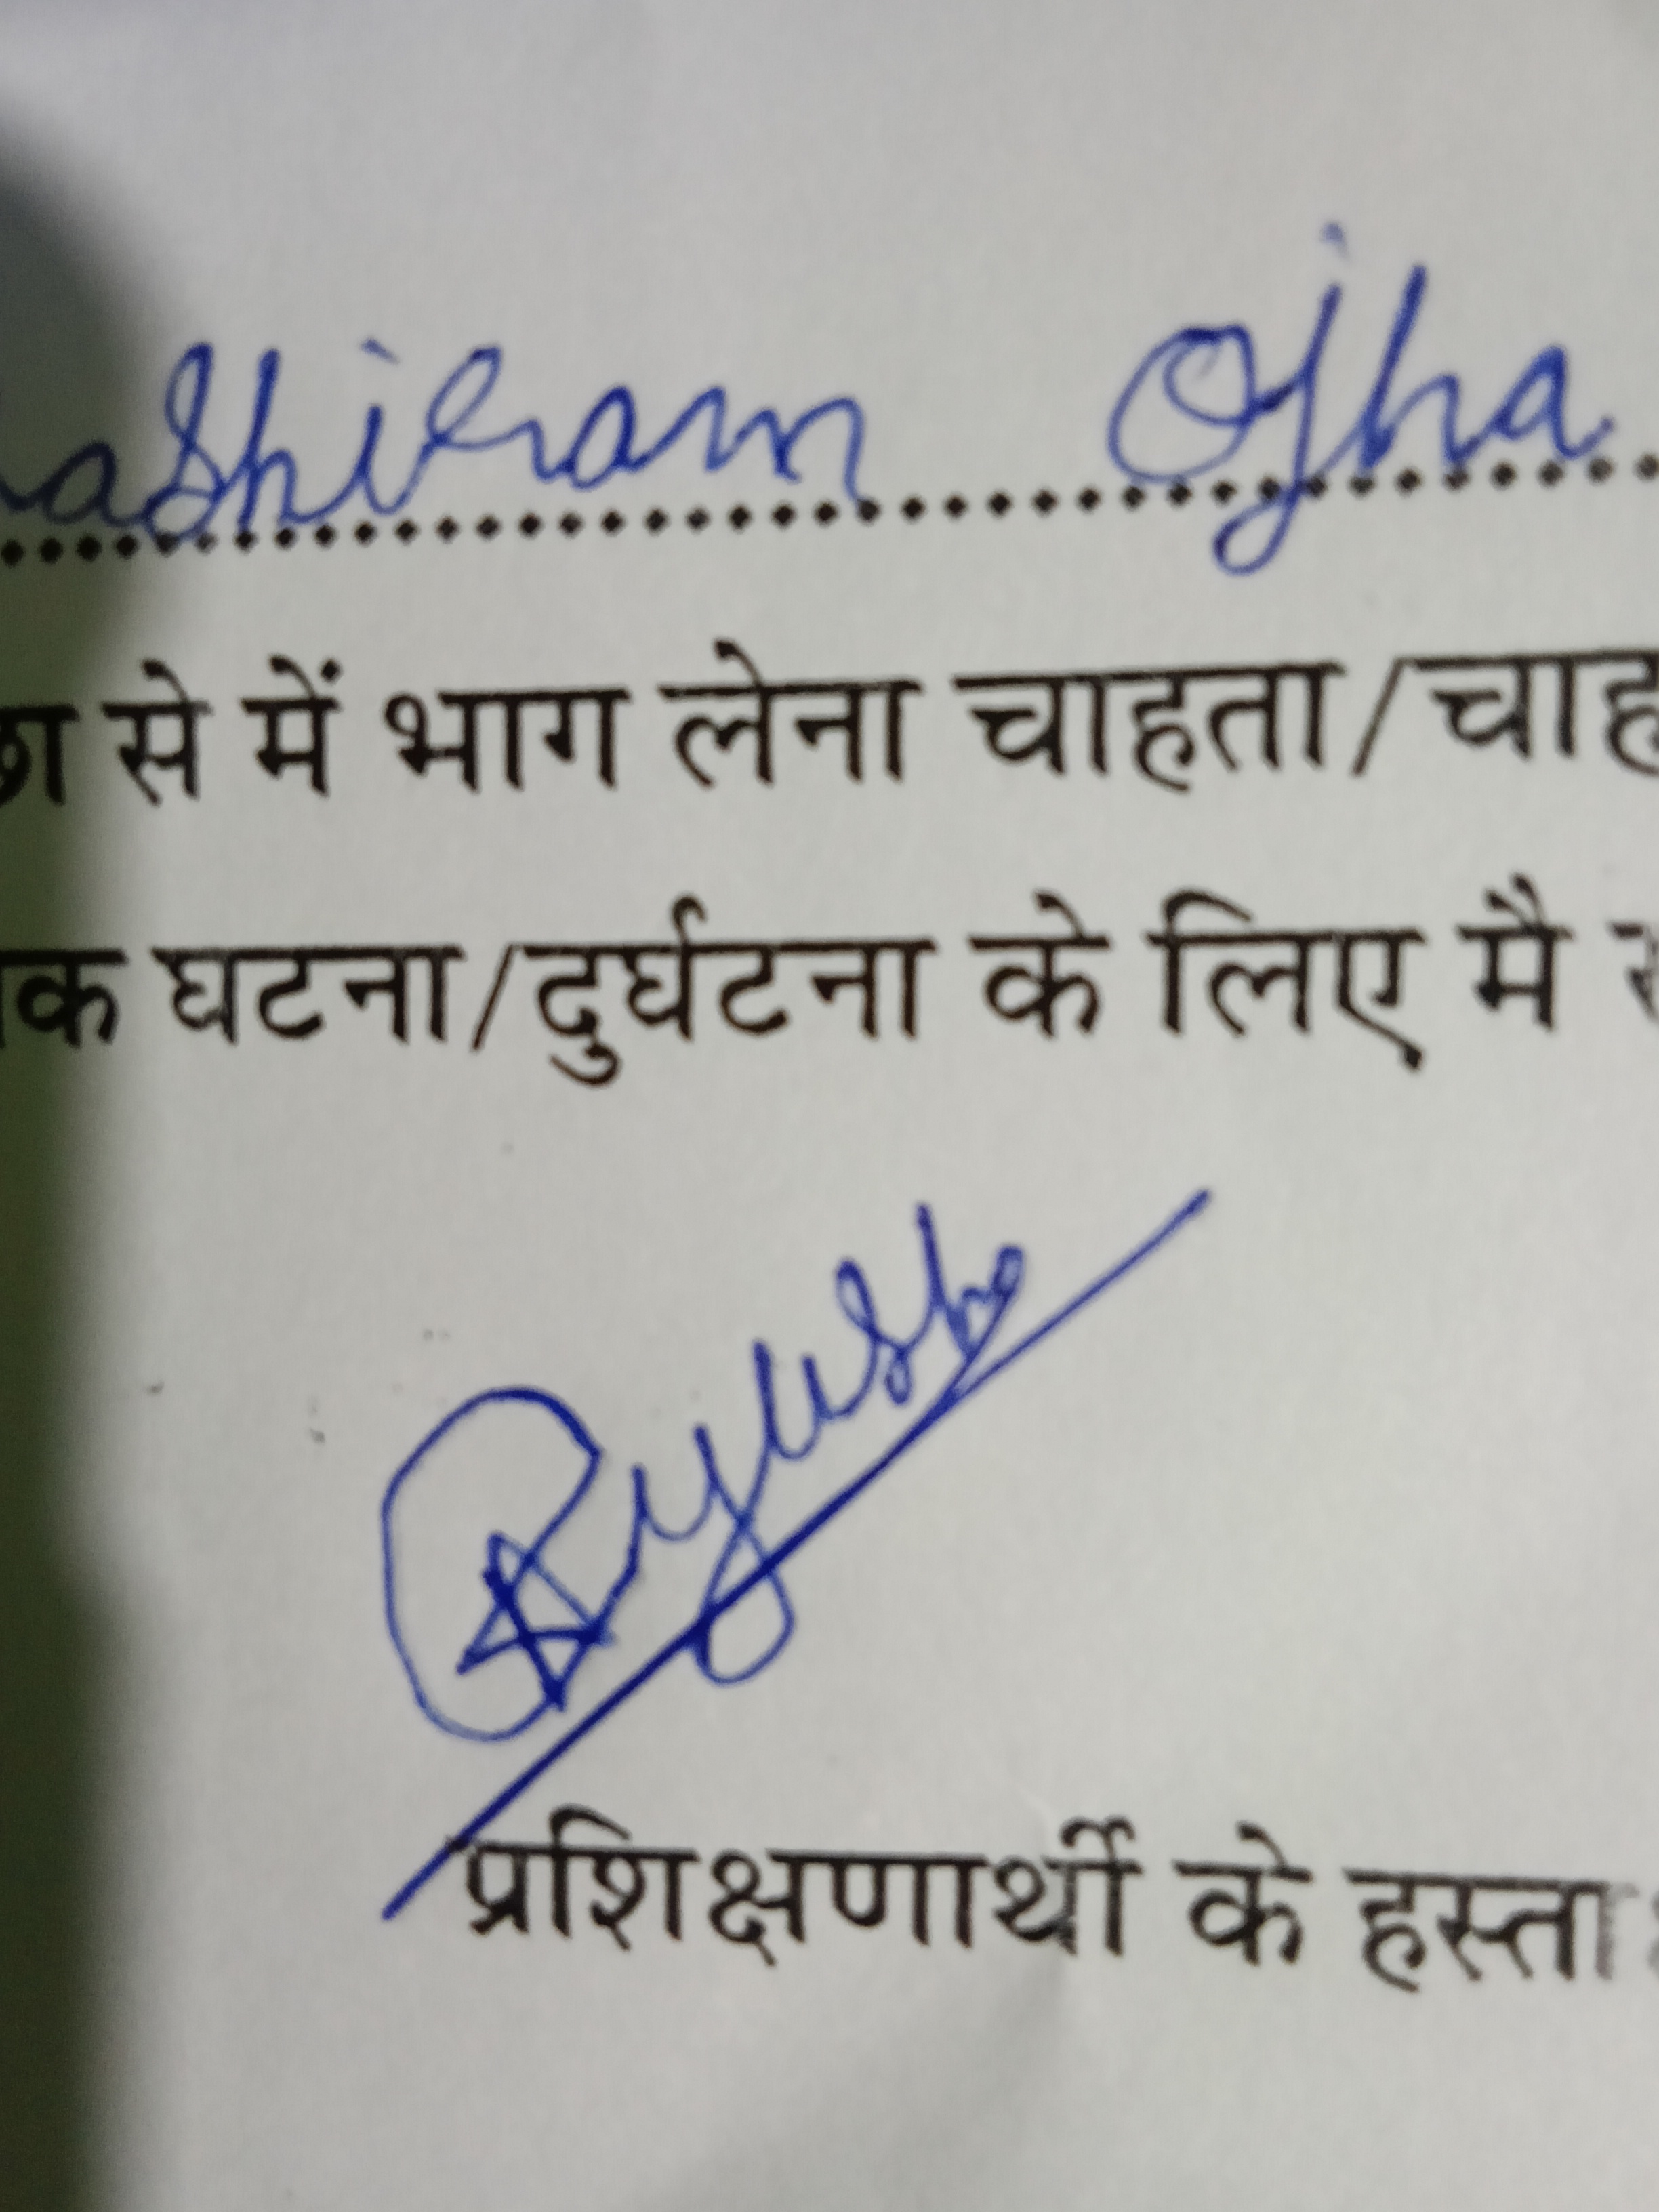 ashiram Ojha
से में भाग लेना चाहता/चाह
घटना/दुर्घटना के लिए मै
प्रशिक्षणार्थी के हस्ता